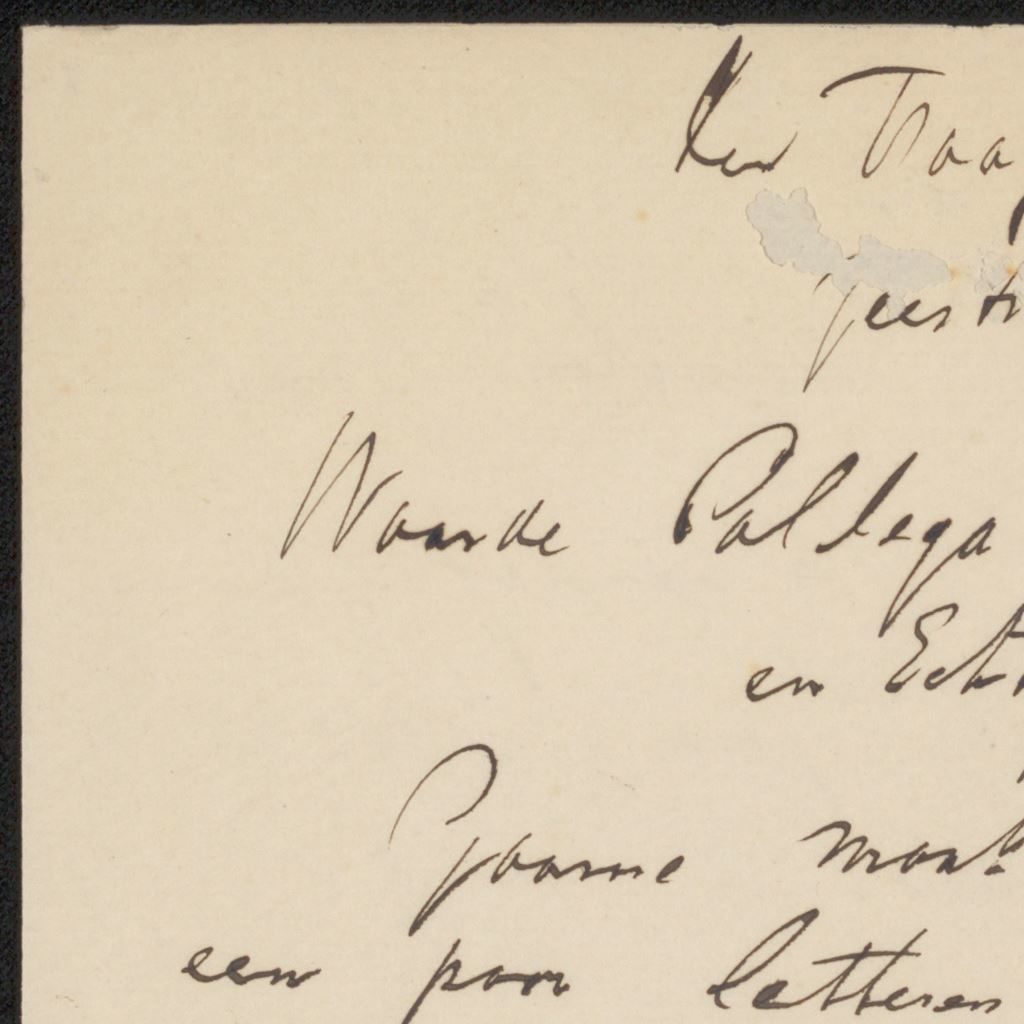 den Haa
Geestr
Waarde Collega
en Echt
Gaarne maak
een paar letteren